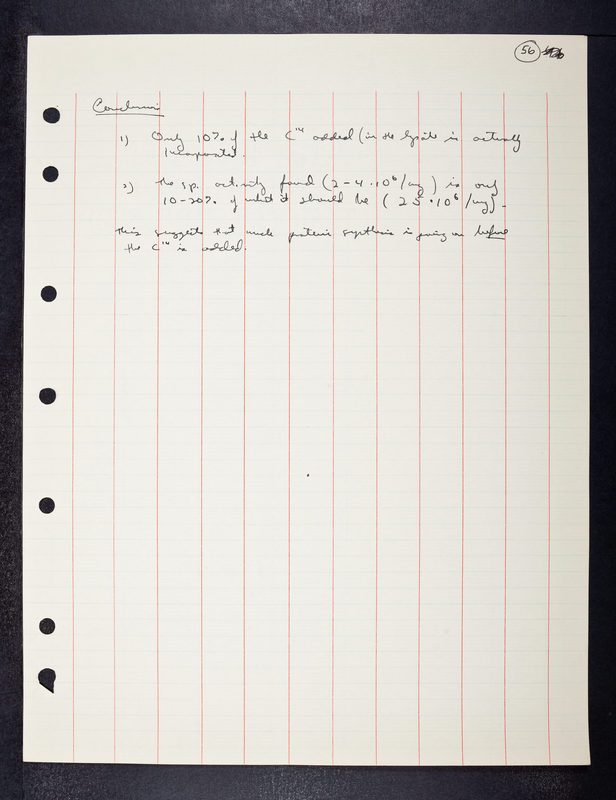 56
Conclusion
1) Only 10% of the C¹⁴ added (in the lysate is actually
incorporated.
2) The sp. activity found (2-4·10⁶/mg) is only
10-20% of what it should be (25·10⁶/mg).
This suggests that much protein synthesis is going on before
the C¹⁴ is added.